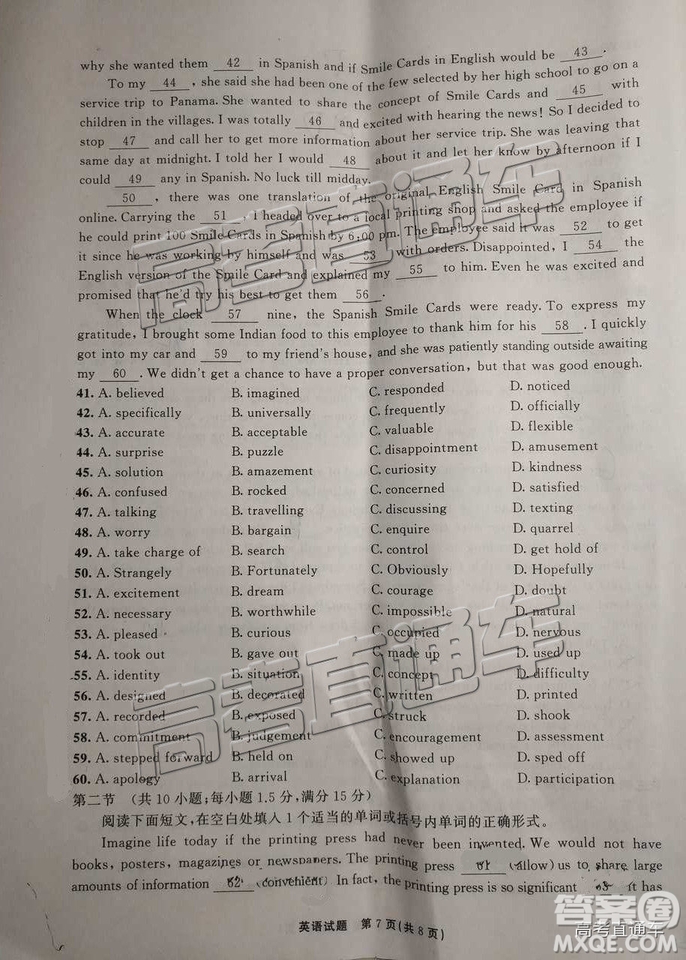 why she wanted them 42 in Spanish and if Smile Cards in English would be 43 .
To my 44 , she said she had been one of the few selected by her high school to go on a
service trip to Panama. She wanted to share the concept of Smile Cards and 45 with
children in the villages. I was totally 46 and excited with hearing the news! So I decided to
stop 47 and call her to get more information about her service trip. She was leaving that
same day at midnight. I told her I would 48 about it and let her know by afternoon if I
could 49 any in Spanish. No luck till midday.
50 , there was one translation of the original English Smile Card in Spanish
online. Carrying the 51 , I headed over to a local printing shop and asked the employee if
he could print 100 Smile Cards in Spanish by 6:00 pm. The employee said it was 52 to get
it since he was working by himself and was 53 with orders. Disappointed, I 54 the
English version of the Smile Card and explained my 55 to him. Even he was excited and
promised that he'd try his best to get them 56 .
When the clock 57 nine, the Spanish Smile Cards were ready. To express my
gratitude, I brought some Indian food to this employee to thank him for his 58 . I quickly
got into my car and 59 to my friend's house, and she was patiently standing outside awaiting
my 60 . We didn't get a chance to have a proper conversation, but that was good enough.
41. A. believed B. imagined C. responded D. noticed
42. A. specifically B. universally C. frequently D. officially
43. A. accurate B. acceptable C. valuable D. flexible
44. A. surprise B. puzzle C. disappointment D. amusement
45. A. solution B. amazement C. curiosity D. kindness
46. A. confused B. rocked C. concerned D. satisfied
47. A. talking B. travelling C. discussing D. texting
48. A. worry B. bargain C. enquire D. quarrel
49. A. take charge of B. search C. control D. get hold of
50. A. Strangely B. Fortunately C. Obviously D. Hopefully
51. A. excitement B. dream C. courage D. doubt
52. A. necessary B. worthwhile C. impossible D. natural
53. A. pleased B. curious C. occupied D. nervous
54. A. took out B. gave out C. made up D. used up
55. A. identity B. situation C. concept D. difficulty
56. A. designed B. decorated C. written D. printed
57. A. recorded B. exposed C. struck D. shook
58. A. commitment B. judgement C. encouragement D. assessment
59. A. stepped forward B. headed C. showed up D. sped off
60. A. apology B. arrival C. explanation D. participation
第二节 (共10小题;每小题1.5分,满分15分)
阅读下面短文,在空白处填入1个适当的单词或括号内单词的正确形式。
Imagine life today if the printing press had never been invented. We would not have
books, posters, magazines or newspapers. The printing press 61 (allow) us to share large
amounts of information 62 (convenient). In fact, the printing press is so significant 63 it has
英语试题 第7页(共8页)
高考直通车
高考直通车
高考直通车
答案圈
高考直通车
MXQE.COM